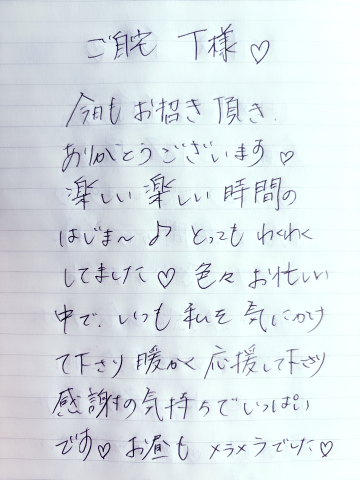 ご自宅 T様♡
今日もお招き頂き、
ありがとうございます♡
楽しい楽しい時間の
はじま〜♪ とっても わくわく
してました♡ 色々お忙しい
中で、いつも私を気にかけ
て下さり 暖かく応援して下さり
感謝の気持ちでいっぱい
です♡ お昼も メラメラでした♡